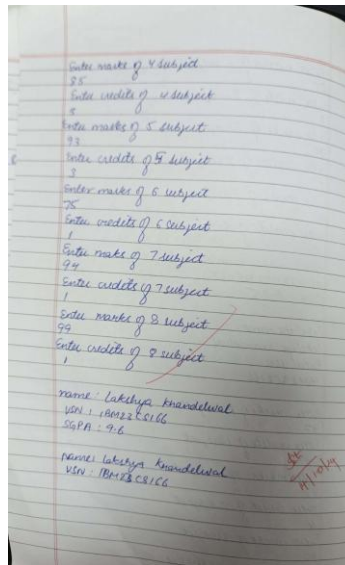 Enter marks of 4 subject
85
Enter credits of 4 subject
3
Enter marks of 5 subject
93
Enter credits of 5 subject
3
Enter marks of 6 subject
75
Enter credits of 6 subject
1
Enter marks of 7 subject
94
Enter credits of 7 subject
1
Enter marks of 8 subject
99
Enter credits of 8 subject
1
name: Lakshya Khandelwal
USN: 1BM23CS166
SGPA: 9.6
name: Lakshya Khandelwal
USN: 1BM23CS166